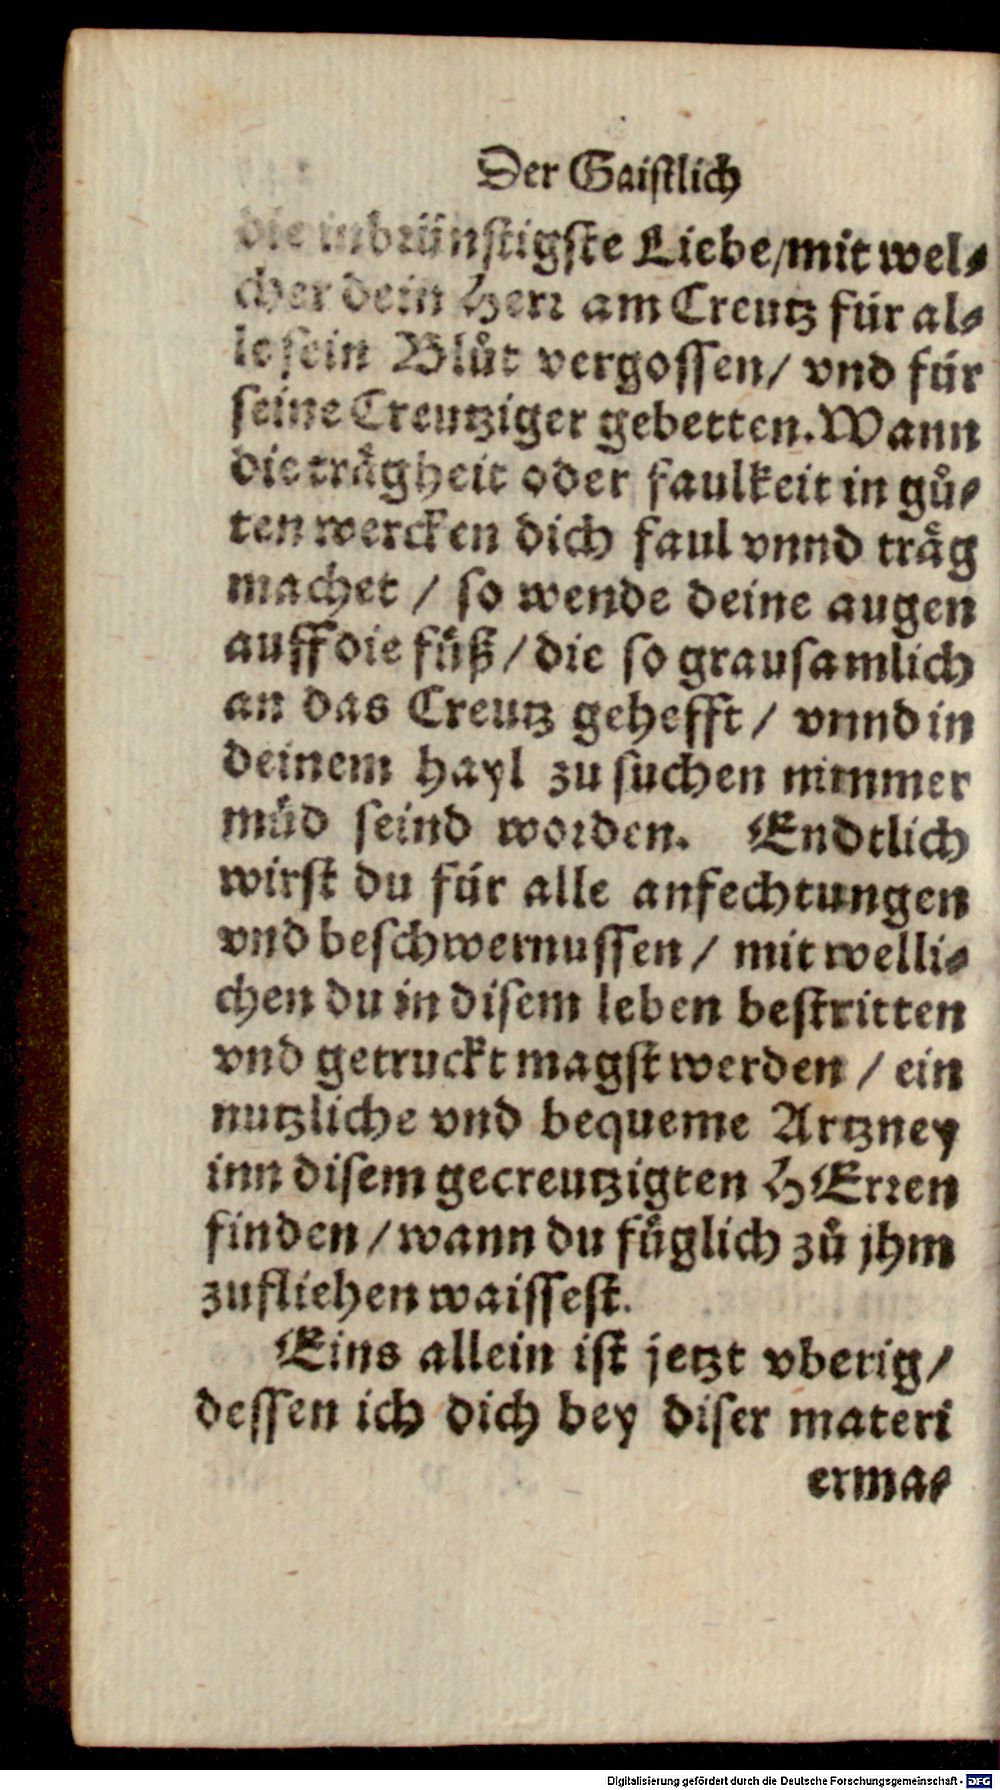 Der Gaistlich
die inbrünstigste Liebe/mit wel⸗
cher dein Herr am Creutz für al⸗
le sein Blůt vergossen/ vnd für
seine Creutziger gebetten. Wann
die trägheit oder faulkeit in gů⸗
ten wercken dich faul vnnd träg
machet / so wende deine augen
auff die füß / die so grausamlich
an das Creutz gehefft / vnnd in
deinem hayl zu suchen nimmer
müd seind worden. Endtlich
wirst du für alle anfechtungen
vnd beschwernussen / mit welli⸗
chen du in disem leben bestritten
vnd getruckt magst werden / ein
nutzliche vnd bequeme Artzney
inn disem gecreutzigten HErren
finden / wann du füglich zů jhm
zufliehen waissest.
Eins allein ist jetzt vberig/
dessen ich dich bey diser materi
erma⸗
Digitalisierung gefördert durch die Deutsche Forschungsgemeinschaft - DFG